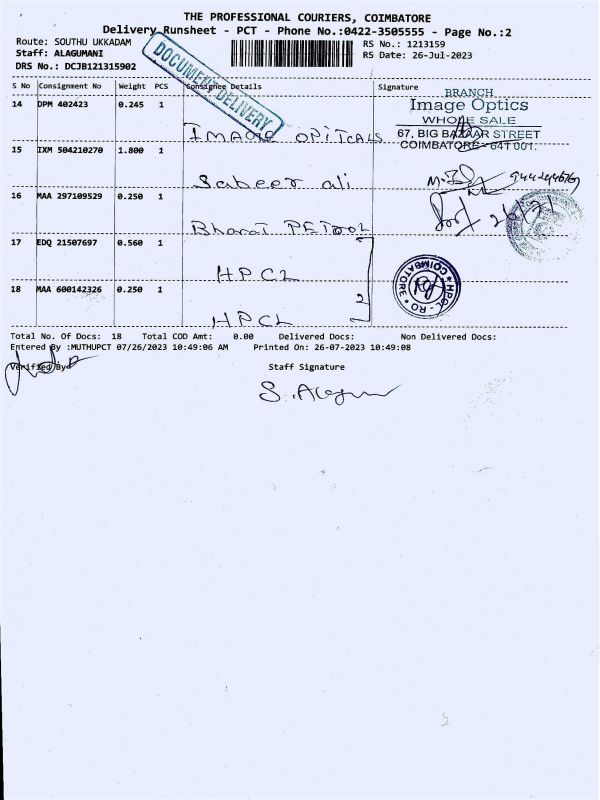 THE PROFESSIONAL COURIERS, COIMBATORE
Delivery Runsheet - PCT - Phone No.:0422-3505555 - Page No.:2
Route: SOUTHU UKKADAM
RS No.: 1213159
Staff: ALAGUMANI
RS Date: 26-Jul-2023
DRS No.: DCJB121315902
DOCUMENT DELIVERY
S No Consignment No Weight PCS Consignee Details Signature
14 DPM 402423 0.245 1
IMAGE OPITCALS
BRANCH
Image Optics
WHOLE SALE
67, BIG BAZAAR STREET
COIMBATORE - 641 001.
15 IXM 504210270 1.800 1
Sabeer ali
16 MAA 297109529 0.250 1
Bharat PETROL
17 EDQ 21507697 0.560 1
HPCL
18 MAA 600142326 0.250 1
HPCL
2
HPCL - RO
COIMBATORE
Total No. Of Docs: 18 Total COD Amt: 0.00 Delivered Docs: Non Delivered Docs:
Entered By :MUTHUPCT 07/26/2023 10:49:06 AM Printed On: 26-07-2023 10:49:08
Verified By
Staff Signature
S. Alagu